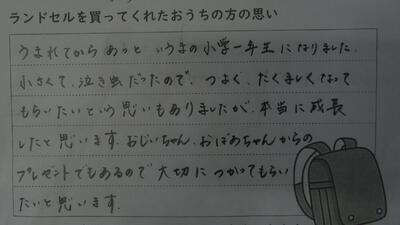 ランドセルを買ってくれたおうちの方の思い
うまれてからあっと いうまの小学一年生になりました。
小さくて、泣き虫だったので、つよく、たくましくなって
もらいたいという思いもありましたが、本当に成長
したと思います。おじいちゃん、おばあちゃんからの
プレゼントでもあるので大切につかってもらい
たいと思います。